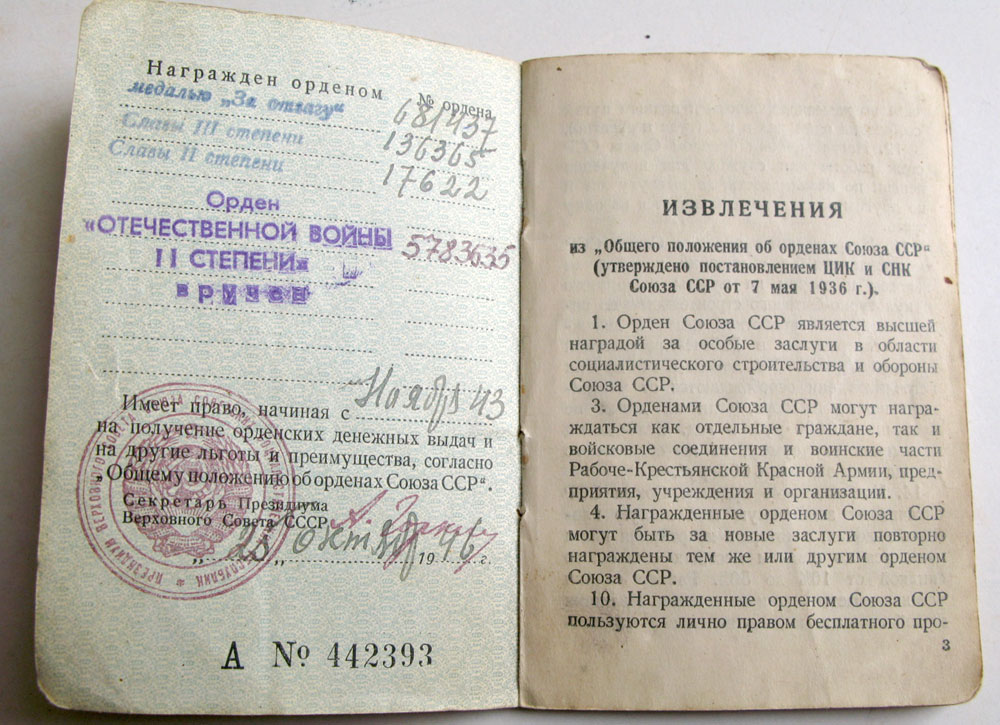 Награжден орденом
№ ордена
медалью „За отвагу“ 681437
Славы III степени 136365
Славы II степени 17622
Орден
«ОТЕЧЕСТВЕННОЙ ВОЙНЫ 5783635
II СТЕПЕНИ»
вручен
Имеет право, начиная с Ноября 43
на получение орденских денежных выдач и
на другие льготы и преимущества, согласно
„Общему положению об орденах Союза ССР“.
Секретарь Президиума
Верховного Совета СССР
„25“ октября 1946 г.
А № 442393
ИЗВЛЕЧЕНИЯ
из „Общего положения об орденах Союза ССР“
(утверждено постановлением ЦИК и СНК
Союза ССР от 7 мая 1936 г.).
1. Орден Союза ССР является высшей
наградой за особые заслуги в области
социалистического строительства и обороны
Союза ССР.
3. Орденами Союза ССР могут награ-
ждаться как отдельные граждане, так и
войсковые соединения и воинские части
Рабоче-Крестьянской Красной Армии, пред-
приятия, учреждения и организации.
4. Награжденные орденом Союза ССР
могут быть за новые заслуги повторно
награждены тем же или другим орденом
Союза ССР.
10. Награжденные орденом Союза ССР
пользуются лично правом бесплатного про-
3